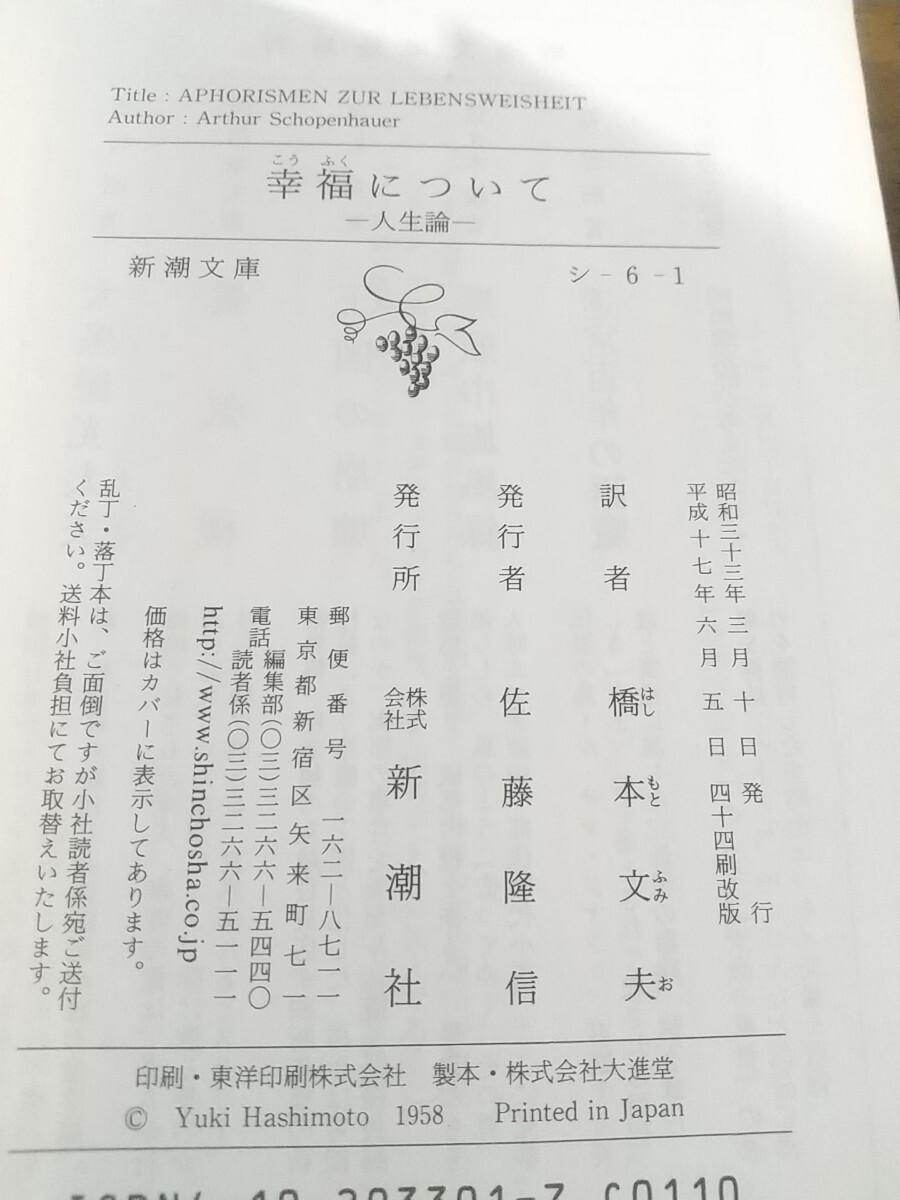 Title : APHORISMEN ZUR LEBENSWEISHEIT
Author : Arthur Schopenhauer
こう ふく
幸福について
―人生論―
新潮文庫
シ-6-1
昭和三十三年三月十日発行
平成十七年六月五日四十四刷改版
訳者 橋本文夫
はし もと ふみ お
発行者 佐藤隆信
発行所 株式会社 新潮社
郵便番号 一六二―八七一一
東京都新宿区矢来町七一
電話 編集部(〇三)三二六六―五四四〇
読者係(〇三)三二六六―五一一一
http://www.shinchosha.co.jp
価格はカバーに表示してあります。
乱丁・落丁本は、ご面倒ですが小社読者係宛ご送付
ください。送料小社負担にてお取替えいたします。
印刷・東洋印刷株式会社 製本・株式会社大進堂
© Yuki Hashimoto 1958 Printed in Japan